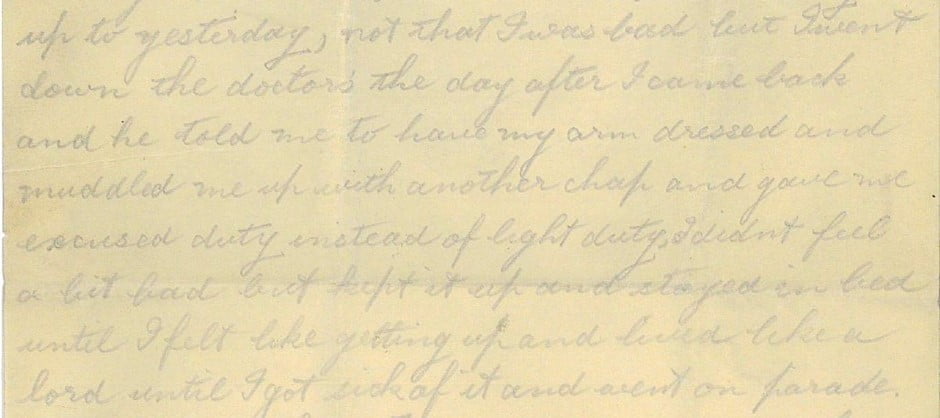 up to yesterday, not that I was bad but I went
down the doctor's the day after I came back
and he told me to have my arm dressed and
muddled me up with another chap and gave me
excused duty instead of light duty, I didn't feel
a bit bad but kept it up and stayed in bed
until I felt like getting up and lived like a
lord until I got sick of it and went on parade.